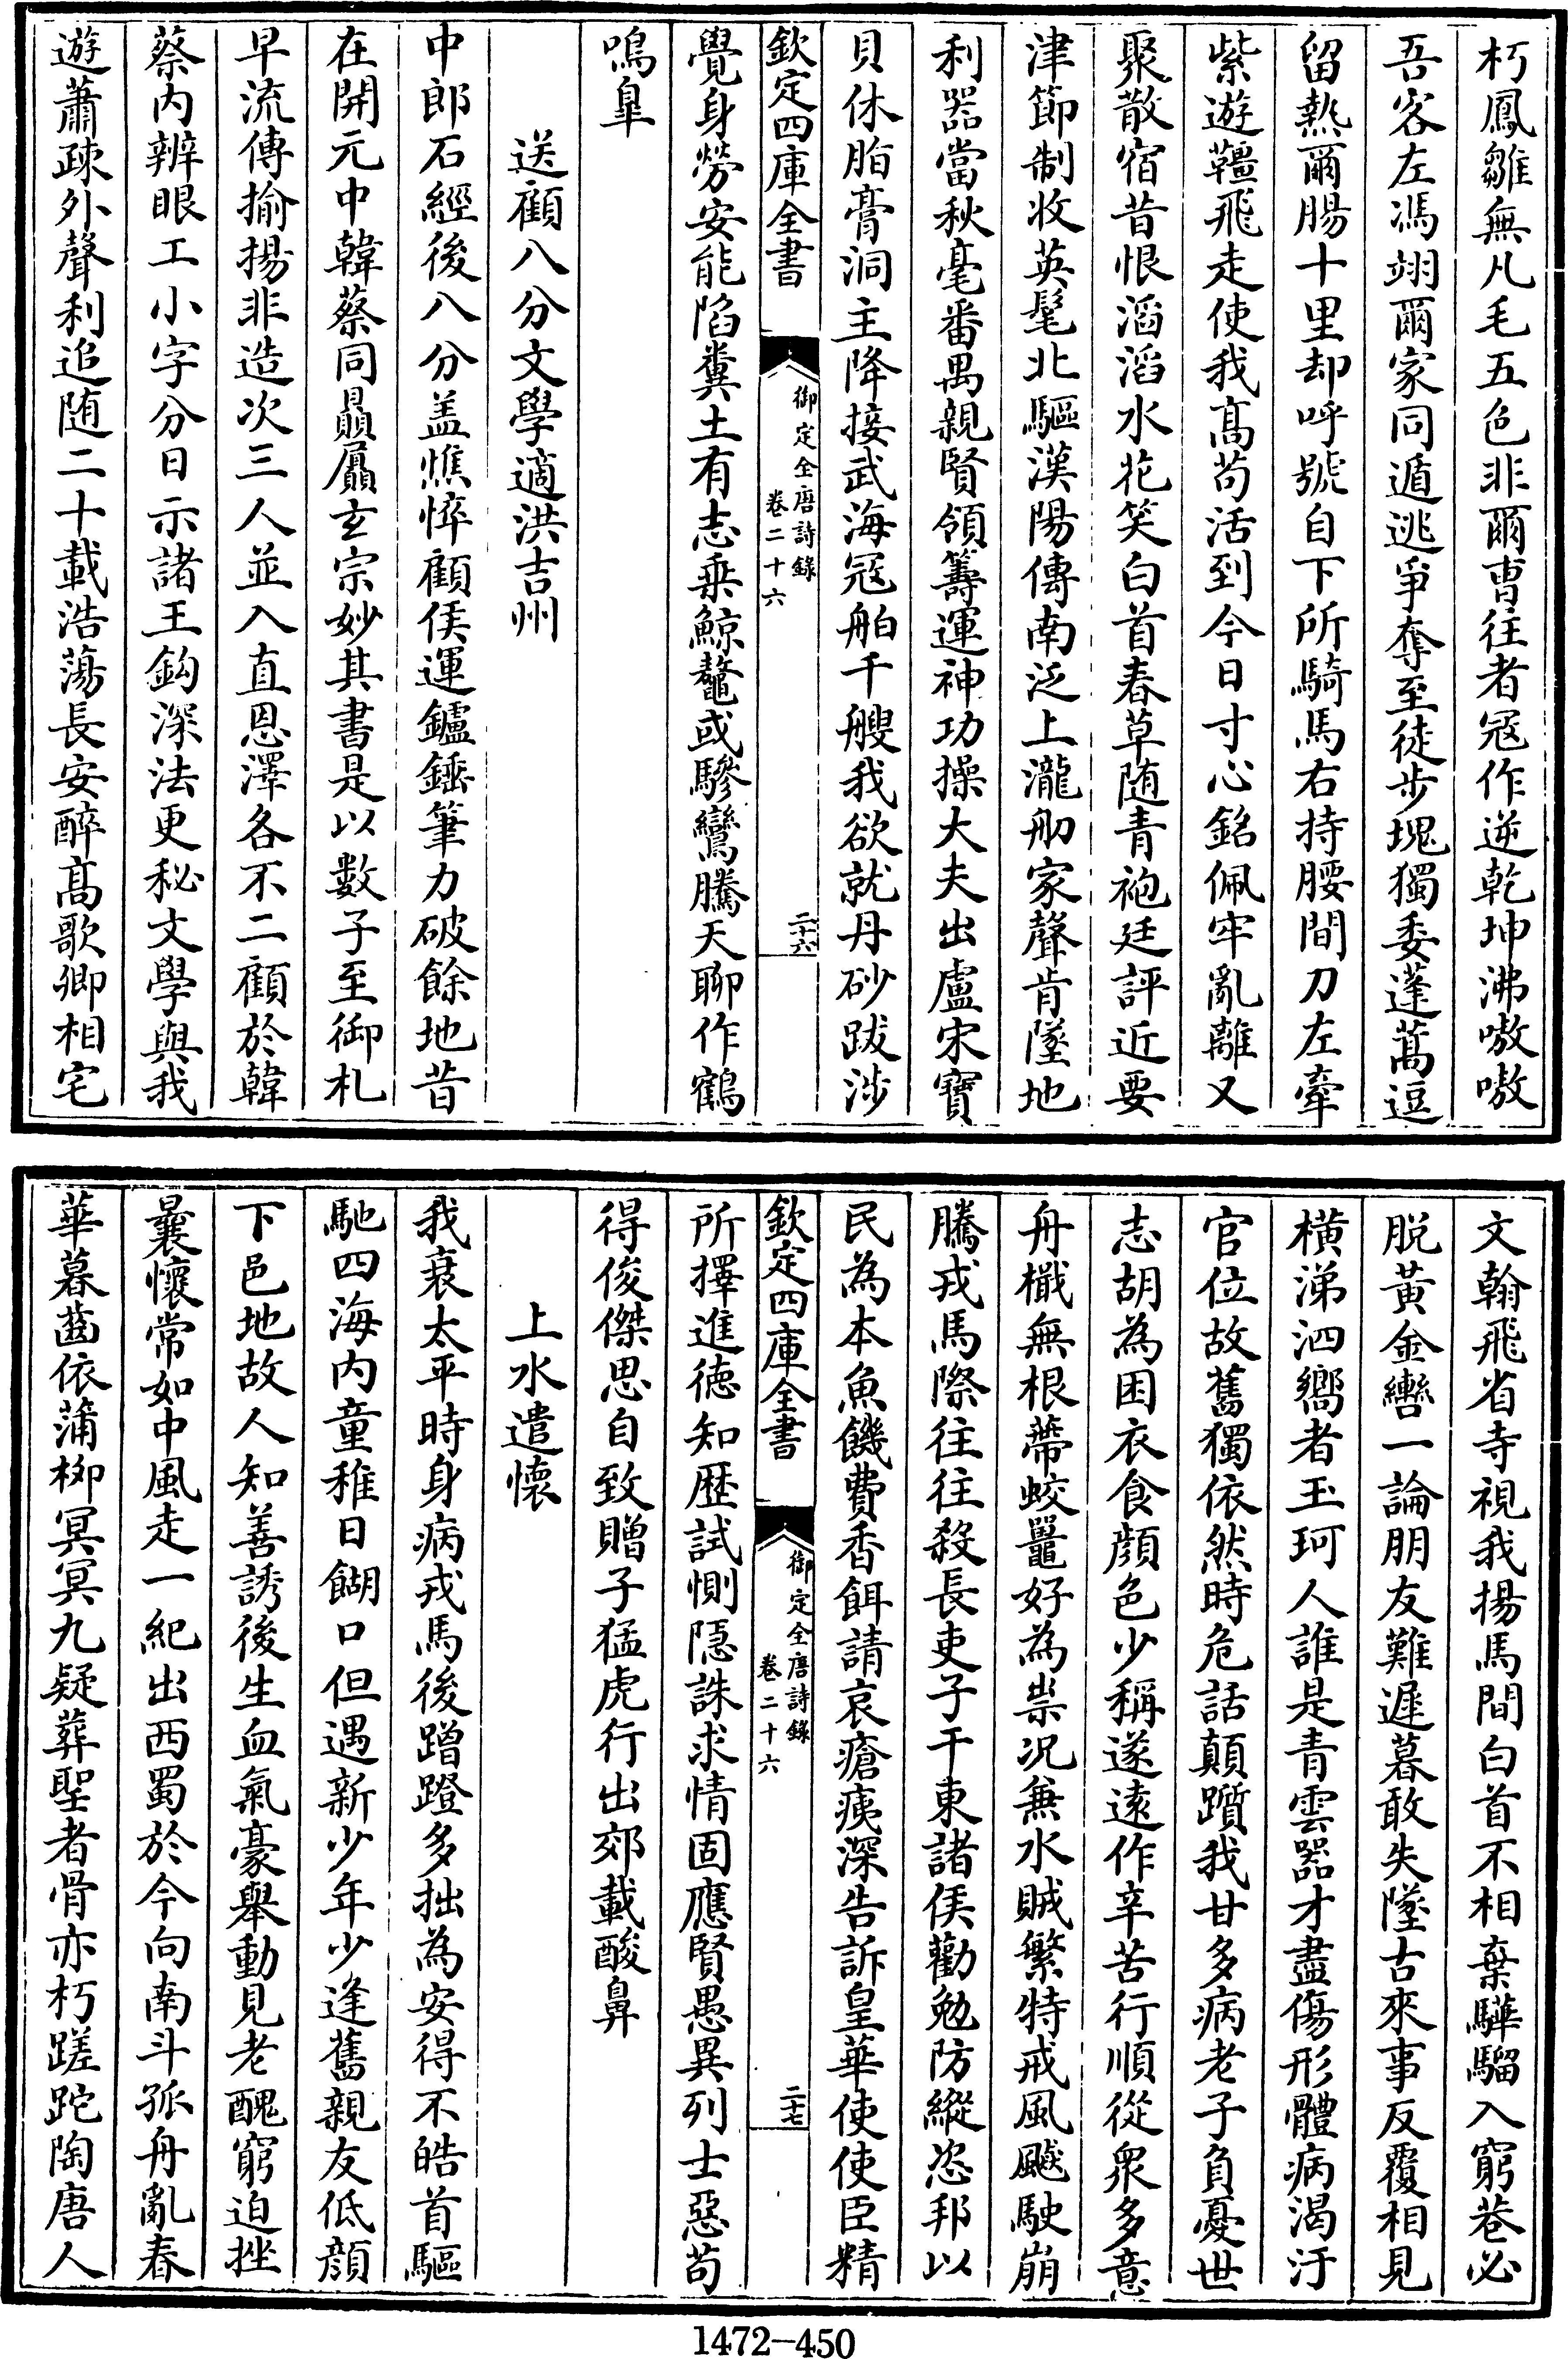 朽鳳雛無凡毛五色非爾曹往者冦作逆乾坤沸嗷嗷
吾客左馮翊爾家同遁逃爭奪至徒步塊獨委蓬蒿逗
留熱爾腸十里却呼號自下所騎馬右持腰間刀左牽
紫遊韁飛走使我髙苟活到今日寸心銘佩牢亂離又
聚散宿昔恨滔滔水花笑白首春草随青袍廷評近要
津節制收英髦北驅漢陽傳南泛上瀧舠家聲肯墜地
利器當秋毫番禺親賢領籌運神功操大夫出盧宋寳
貝休脂膏洞主降接武海冦舶千艘我欲就丹砂跋涉
欽定四庫全書
御定全唐詩錄
卷二十六
二十六
覺身勞安能陷糞土有志乗鯨鼇或驂鸞騰天聊作鶴
鳴臯
送顧八分文學適洪吉州
中郎石經後八分盖憔悴顧侯運鑪錘筆力破餘地昔
在開元中韓蔡同贔屭玄宗妙其書是以數子至御札
早流傳揄揚非造次三人並入直恩澤各不二顧於韓
蔡内辨眼工小字分日示諸王鈎深法更秘文學與我
遊蕭疎外聲利追随二十載浩蕩長安醉髙歌卿相宅
文翰飛省寺視我揚馬間白首不相棄驊騮入窮巷必
脱黄金轡一論朋友難遲暮敢失墜古來事反覆相見
横涕泗嚮者玉珂人誰是青雲器才盡傷形體病渴汙
官位故舊獨依然時危話顛躓我甘多病老子負憂世
志胡為困衣食顔色少稱遂逺作辛苦行順從衆多意
舟檝無根蔕蛟鼉好為祟况兼水賊繁特戒風飈駛崩
騰戎馬際往往殺長吏子干東諸侯勸勉防縱恣邦以
民為本魚饑費香餌請哀瘡痍深告訴皇華使使臣精
欽定四庫全書
御定全唐詩錄
卷二十六
二十七
所擇進徳知歴試惻隠誅求情固應賢愚異列士惡苟
得俊傑思自致贈子猛虎行出郊載酸鼻
上水遣懷
我衰太平時身病戎馬後蹭蹬多拙為安得不皓首驅
馳四海内童稚日餬口但遇新少年少逢舊親友低顔
下邑地故人知善誘後生血氣豪舉動見老醜窮迫挫
曩懷常如中風走一紀出西蜀於今向南斗孤舟亂春
華暮齒依蒲柳冥冥九疑葬聖者骨亦朽蹉跎陶唐人
1472-450